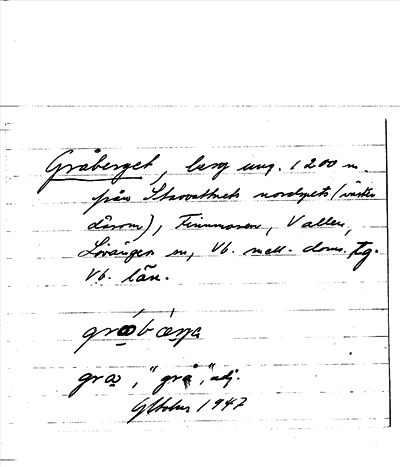 Gråberget, berg ung. 1200 m.
från Storvattnets nordspets (väster
därom), Finnmoren, Vallen,
Lövånger sn, Vb. mell. doms. tg.
Vb. län.
gra, "grå", adj.
1947